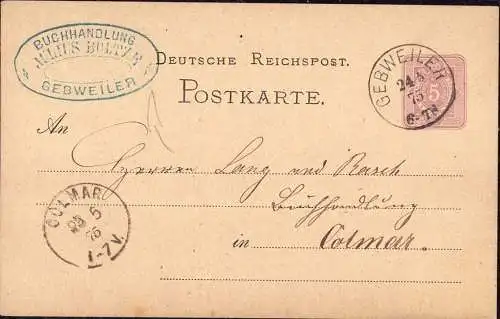 BUCHHANDLUNG
JULIUS BOLTZE
GEBWEILER
DEUTSCHE REICHSPOST.
POSTKARTE.
GEBWEILER
75
6-7N
5
An
Herren Lang und Rasch
Buchhandlung
in Colmar.
COLMAR
5
I-7V.